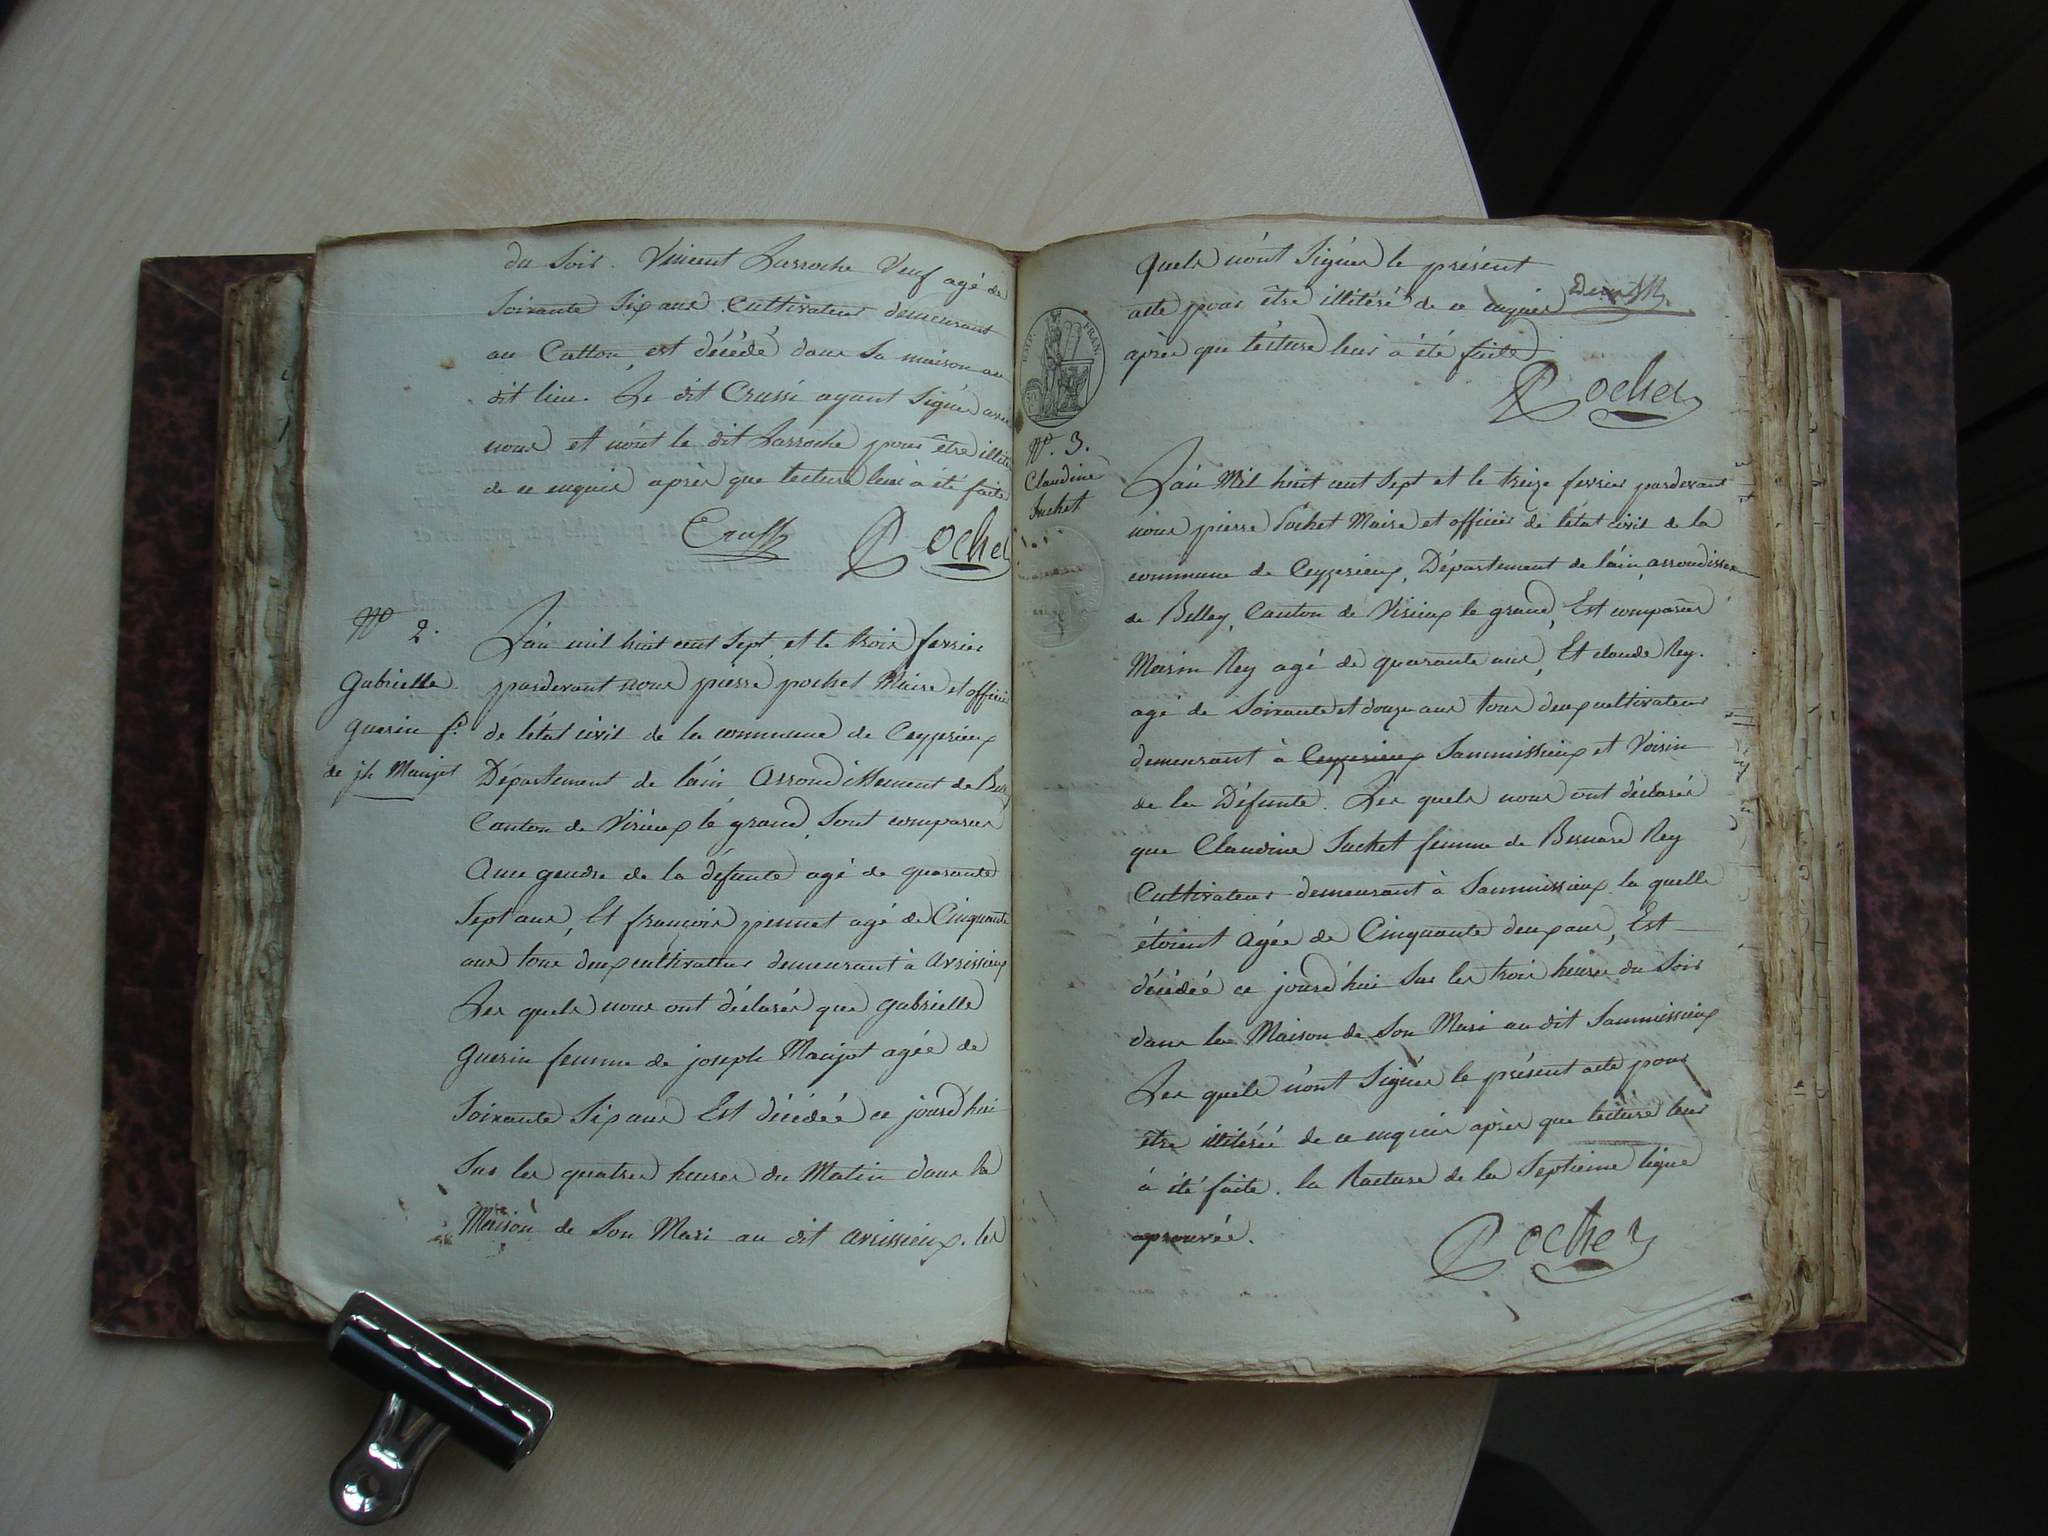 du Soir. Vincent Larroche Veuf agé de
Soixante Six ans Cultivateur demeurant
au Catton est décédé dans Sa maison au
dit lieu. Le dit Crussi ayant Signé avec
nous et n'ont le dit Larroche pour être illité
de ce enquis après que lecture leur à été faite
Pochet
N° 2.
Gabrielle
guerin fe
de jh Manjot
L'an mil huit cent Sept et le trois fevrier
pardevant nous pierre pochet Maire et officier
de l'état civil de la commune de Ceyzerieux
Département de l'ain arrondissement de
Canton de Virieux le grand, Sont comparus
gendre de la défunte agé de quarante
Sept ans, Et françois pennet agé de Cinquante
ans tous deux cultivateur demeurant à avrissieux
Les quels nous ont déclarés que gabrielle
guerin femme de joseph Manjot agée de
Soixante Six ans Est décédée ce jourd'hui
Sur les quatres heures du Matin dans la
Maison de Son Mari au dit avrissieux. les
quels n'ont Signés le présent
acte pour être illitéré de ce enquis
après que lecture leur à été faite
Pochet
EMP. FRAN.
N°. 3.
Claudine
Suchet
L'an Mil huit cent Sept et le treize fevrier pardevant
nous pierre Pochet Maire et officier de l'état civil de la
commune de Ceyzerieux, Département de l'ain, arrondissem
de Belley, Canton de Virieux le grand, Est comparus
Marin Rey agé de quarante ans, Et claude Rey.
agé de Soixante et douze ans tous deux cultivateur
demeurant à Ceyzerieux Sammissieux et Voisin
de la Défunte. Les quels nous ont déclarés
que Claudine Suchet femme de Bernard Rey
Cultivateur demeurant à Sammissieux la quelle
étoient agée de Cinquante deux ans, Est
décédée ce jourd'hui Sur les trois heures du Soir
dans la Maison de Son Mari au dit Sammissieux
Les quels n'ont Signés le présent acte pour
être illitérés de ce enquis après que lecture leur
à été faite. la Rature de la Septieme ligne
aprouvée.
Pochet